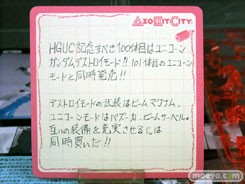 AZONETCITY.
HGUC記念すべき100体目はユニコーン
ガンダムデストロイモード!! 101体目のユニコーン
モードと同時発売!!
デストロイモードの武装はビームマグナム、
ユニコーンモードはバズーカ、ビームサーベル。
互いの装備を充実させるには
同時買いだ!!
moeyo.com